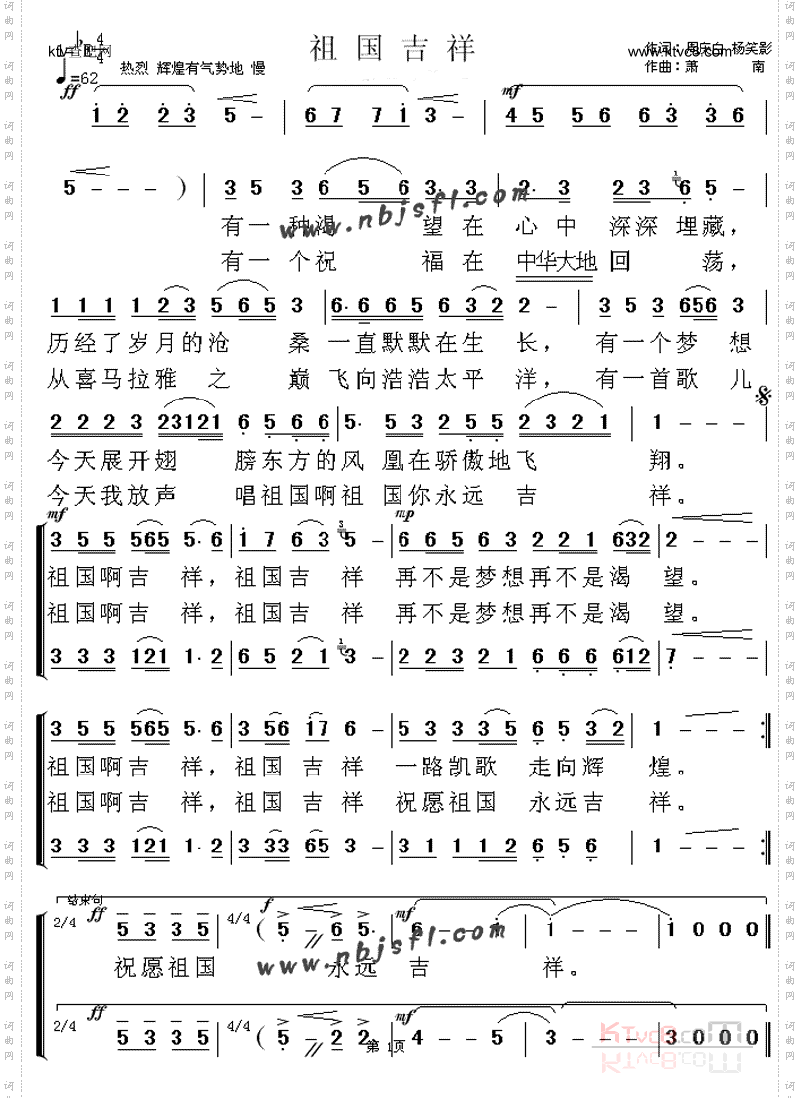 祖国吉祥
ktv查吧网
4
4
♩=62
热烈 辉煌有气势地 慢
www.ktvc8.com
杨笑影
作曲：萧 南
ff
1 2 2 3 5 - | 6 7 7 1 3 - | mf 4 5 5 6 6 3 3 6 |
5 - - - ) | 3 5 3 6 5 6 3· 3 | 2· 3 2 3 6 5 - |
有一种渴 望在 心中 深深埋藏，
www.nbjsfl.com
有一个祝 福在 中华大地回 荡，
1 1 1 1 2 3 5 6 5 3 | 6· 6 6 5 6 3 2 2 - | 3 5 3 656 3
历经了岁月的沧 桑 一直默默在生 长， 有一个梦 想
从喜马拉雅 之 巅 飞向浩浩太平 洋， 有一首歌 儿
2 2 2 3 23121 6 5 6 6 | 5· 5 3 5 2 2 3 2 1 | 1 - - -
今天展开翅 膀东方的风 凰在骄傲地飞 翔。
今天我放声 唱祖国啊祖 国你永远 吉 祥。
mf
mp
3 5 5 565 5· 6 | 1 7 6 3 5 - | 6 6 5 6 3 2 2 1 632 | 2 - - -
祖国啊吉 祥，祖国吉 祥 再不是梦想再不是渴 望。
祖国啊吉 祥，祖国吉 祥 再不是梦想再不是渴 望。
3 3 3 121 1· 2 | 6 5 2 1 3 - | 2 2 3 2 1 6 6 6 612 | 7 - - -
3 5 5 565 5· 6 | 3 56 17 6 - | 5 3 3 3 5 6 5 3 2 | 1 - - - :||
祖国啊吉 祥，祖国 吉 祥 一路凯歌 走向辉 煌。
祖国啊吉 祥，祖国 吉 祥 祝愿祖国 永远吉 祥。
3 3 3 121 1· 2 | 3 33 65 3 - | 3 1 1 1 2 6 5 6 | 1 - - - :||
结束句
2/4 ff 5 3 3 5 | 4/4 ( f 5 - 6 5· | mf 6 - - 1 | 1 - - - | 1 0 0 0 ||
祝愿祖国 永远 吉 祥。
www.nbjsfl.com
2/4 ff 5 3 3 5 | 4/4 ( 5 - 2 2 | mf 4 - - 5 | 3 - - - | 3 0 0 0 ||
第 1页
KTvc8.com
词曲网